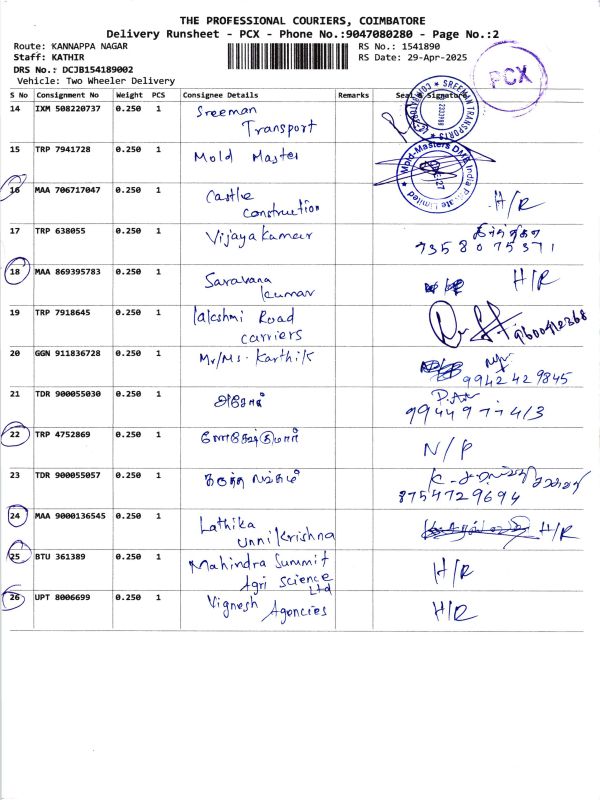 THE PROFESSIONAL COURIERS, COIMBATORE
Delivery Runsheet - PCX - Phone No.:9047080280 - Page No.:2
Route: KANNAPPA NAGAR
RS No.: 1541890
Staff: KATHIR
RS Date: 29-Apr-2025
DRS No.: DCJB154189002
Vehicle: Two Wheeler Delivery
PCX
S No Consignment No Weight PCS Consignee Details Remarks Seal & Signature
14 IXM 508220737 0.250 1 Sreeman
Transport
SREEMAN TRANSPORTS
15 TRP 7941728 0.250 1 Mold Master
Mold-Masters DME India Private Limited
16 MAA 706717047 0.250 1 Castle H/R
construction
17 TRP 638055 0.250 1 Vijayakumar
7358075371
18 MAA 869395783 0.250 1 Saravana H/R
kumar
19 TRP 7918645 0.250 1 lakshmi Road
carriers
20 GGN 911836728 0.250 1 Mr/Ms. Karthik
9942429845
21 TDR 900055030 0.250 1 அசோக்
22 TRP 4752869 0.250 1 N/P
23 TDR 900055057 0.250 1
8754729694
24 MAA 9000136545 0.250 1 Lathika H/R
unnikrishna
25 BTU 361389 0.250 1 Mahindra Summit H/R
Agri science
Ltd
26 UPT 8006699 0.250 1 Vignesh Agencies H/R